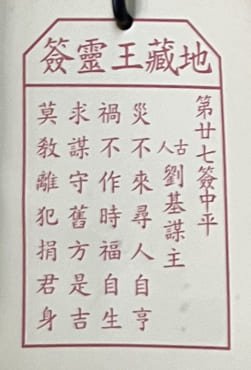 地藏王靈簽
第廿七簽中平
古人劉基謀主
災不來尋人自亨
禍不作時福自生
求謀守舊方是吉
莫教離犯捐君身